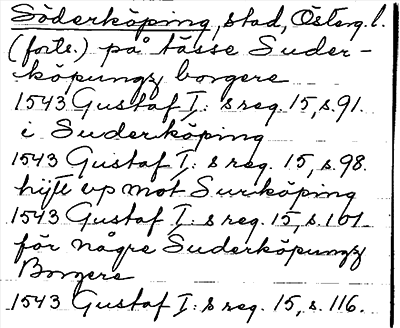 Söderköping, stad, Österg. l.
(forts.) på tässe Suder-
köpungz borgere
1543 Gustaf I: s reg. 15, s. 91.
i Suderköping
1543 Gustaf I: s reg. 15, s. 98.
hijtt vp mot Surköping
1543 Gustaf I: s reg. 15, s. 101
för någre Suderköpungz
Borgere
1543 Gustaf I: s reg. 15, s. 116.